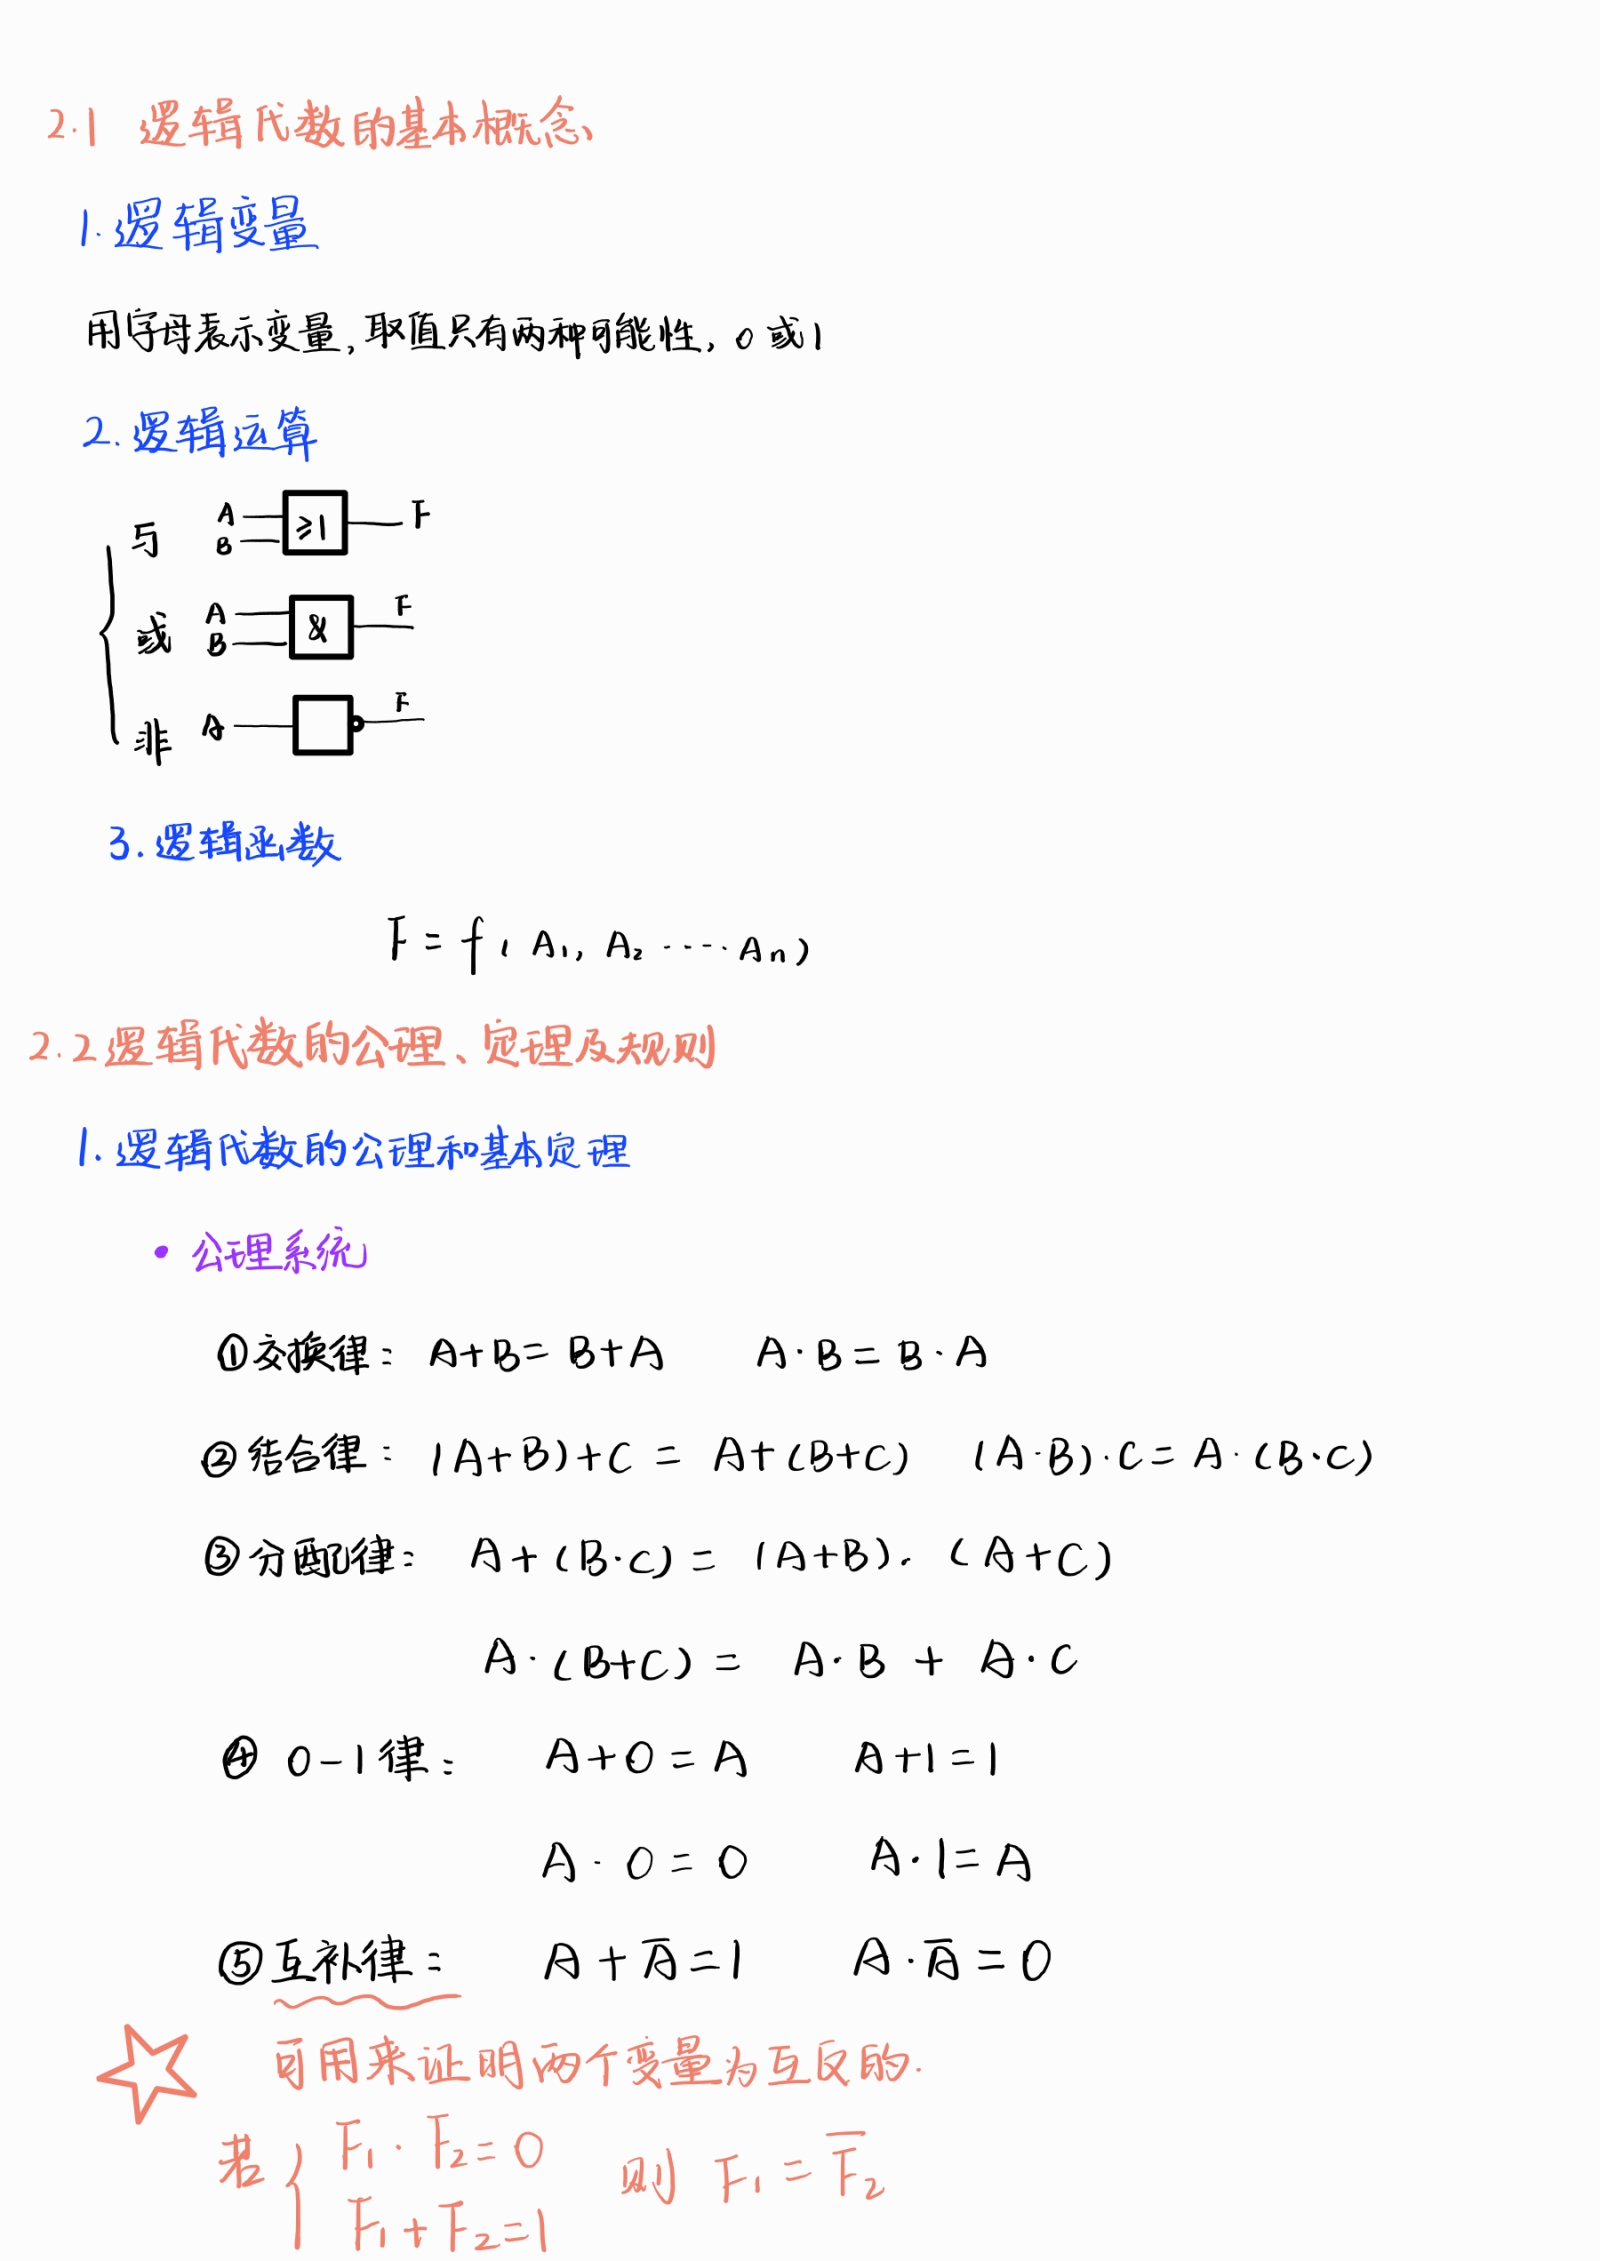 2.1 逻辑代数的基本概念
1.逻辑变量
用字母表示变量,取值只有两种可能性,0或1
2.逻辑运算
与 A B ≥1 F
或 A B & F
非 A F
3.逻辑函数
F=f(A₁,A₂·····Aₙ)
2.2逻辑代数的公理、定理及规则
1.逻辑代数的公理和基本定理
• 公理系统
①交换律: A+B=B+A A·B=B·A
②结合律: (A+B)+C=A+(B+C) (A·B)·C=A·(B·C)
③分配律: A+(B·C)=(A+B)·(A+C)
A·(B+C)=A·B+A·C
④ 0-1律: A+0=A A+1=1
A·0=0 A·1=A
⑤互补律: A+A̅=1 A·A̅=0
可用来证明两个变量为互反的.
若{ F₁·F₂=0 则 F₁=F̅₂
F₁+F₂=1